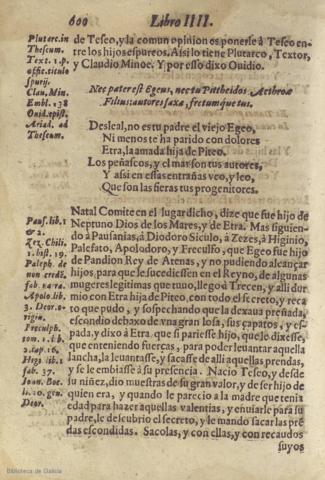 600 Libro IIII.
Plutarc.in
Theseum.
Text. 1.p.
offit.titulo
spurij.
Clau.Min.
Embl. 138
Ouid.epist.
Ariad. ad
Theseum.
de Teseo, y la comun opinion es ponerse à Teseo en-
tre los hijos espureos. Assi lo tiene Plutarco, Textor,
y Claudio Minoe. Y por esso dixo Ouidio.
Nec pater est Egeus, nec tu Pittheidos Aethrae
Filius: autores saxa, fretumque tus.
Desleal, no es tu padre el viejo Egeo,
Ni menos te ha parido con dolores
Etra, la amada hija de Piteo.
Los peñascos, y el mar son tus autores,
Y assi en essas entrañas veo, y leo,
Que son las fieras tus progenitores.
Paus.lib.1
& 2.
Zez. Chili.
1.hist. 19.
Paleph. de
non credẽ.
fab. na ra.
Apolo.lib.
3. Deor.o-
rigin.
Freculph.
tom. 1. l b.
2.cap.16.
Higi. lib.
fab. 37.
Ioan. Boc.
li. 10. gen.
Deor.
Natal Comite en el lugar dicho, dize que fue hijo de
Neptuno Dios de los Mares, y de Etra. Mas siguien-
do à Pausanias, à Diodoro Siculo, à Zezes, à Higinio,
Palefato, Apolodoro, y Freculfo, que Egeo fue hijo
de Pandion Rey de Atenas, y no pudiendo alcançar
hijos, para que le sucediessen en el Reyno, de algunas
mugeres legitimas que tuuo, llegò à Trecen, y alli dur
mio con Etra hija de Piteo, con todo el secreto, y reca
to que pudo, y sospechando que la dexaua preñada,
escondio debaxo de vna gran losa, sus çapatos, y es-
pada, y dixo à Etra, que si pariesse hijo, que le diesse,
que en teniendo fuerças, para poder leuantar aquella
lancha, la leuantasse, y sacasse de alli aquellas prendas,
y se le embiasse à su presencia. Nacio Teseo, y desde
su niñez, dio muestras de su gran valor, y de ser hijo de
quien era, y quando le parecio a la madre que tenia
edad para hazer aquellas valentias, y enuiarle para su
padre, le descubrio el secreto, y le mando sacar las pre
das escondidas. Sacolas, y con ellas, y con recaudos
suyos
Biblioteca de Galicia